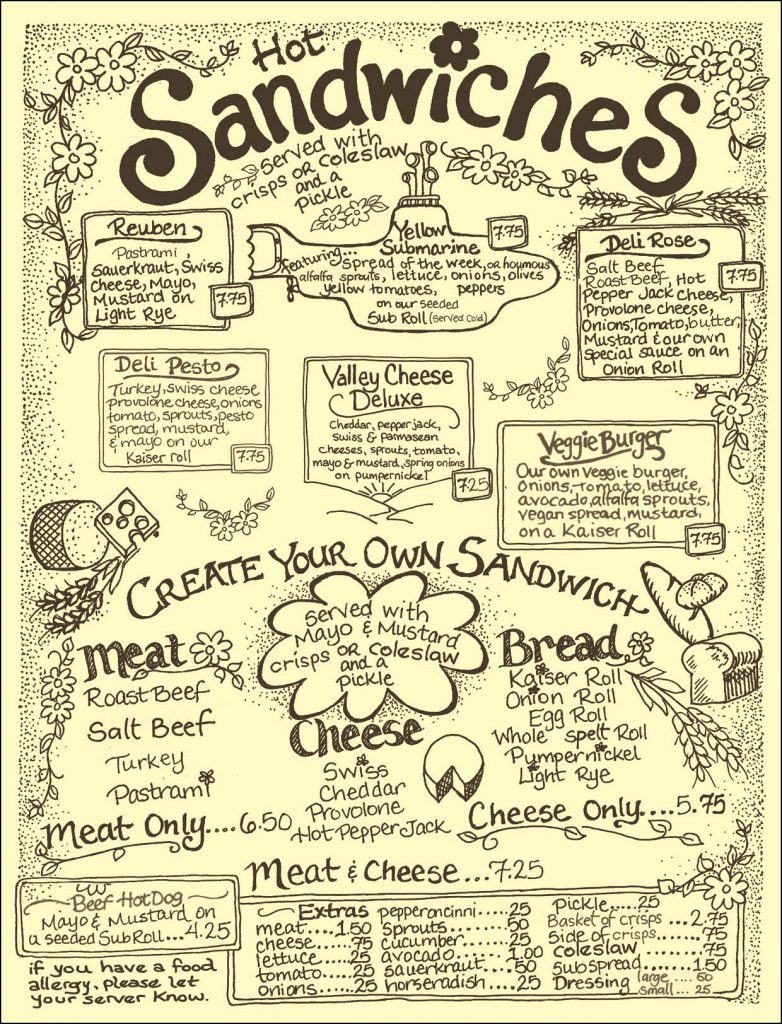 Hot
Sandwiches
Served with
crisps OR Coleslaw
and a
Pickle
Reuben
Pastrami
Sauerkraut, Swiss
cheese, Mayo,
Mustard on
Light Rye
7.75
Yellow
Submarine
7.75
featuring... spread of the week, or houmous
alfalfa sprouts, lettuce, onions, olives
yellow tomatoes, peppers
on our seeded
Sub Roll (Served Cold)
Deli Rose
Salt Beef
Roast Beef, Hot
Pepper Jack cheese,
Provolone cheese,
Onions, Tomato, butter,
Mustard & our own
special sauce on an
Onion Roll
7.75
Deli Pesto
Turkey, swiss cheese
provolone cheese, onions
tomato, sprouts, pesto
spread, mustard,
& mayo on our
Kaiser roll
7.75
Valley Cheese
Deluxe
cheddar, pepper jack,
swiss & parmasean
cheeses, sprouts, tomato,
mayo & mustard, spring onions
on pumpernickel
7.25
Veggie Burger
Our own veggie burger,
onions, tomato, lettuce,
avocado, alfalfa sprouts,
vegan spread, mustard,
on a Kaiser Roll
7.75
Create Your Own Sandwich
Served with
Mayo & Mustard
crisps OR Coleslaw
and a
pickle
Meat
Roast Beef
Salt Beef
Turkey
Pastrami
Meat Only....6.50
Cheese
Swiss
Cheddar
Provolone
Hot Pepper Jack
Bread
Kaiser Roll
Onion Roll
Egg Roll
Whole Spelt Roll
Pumpernickel
Light Rye
Cheese Only....5.75
Meat & Cheese...7.25
Beef Hot Dog
Mayo & Mustard on
a seeded Sub Roll...4.25
if you have a food
allergy, please let
your server know.
Extras
meat....1.50
cheese.....75
lettuce....25
tomato....25
onions....25
pepperoncinni.....25
sprouts........50
cucumber.....25
avocado......1.00
sauerkraut....50
horseradish....25
Pickle....25
Basket of crisps...2.75
side of crisps.....75
coleslaw.......75
sub spread.....1.50
Dressing large...50
small...25